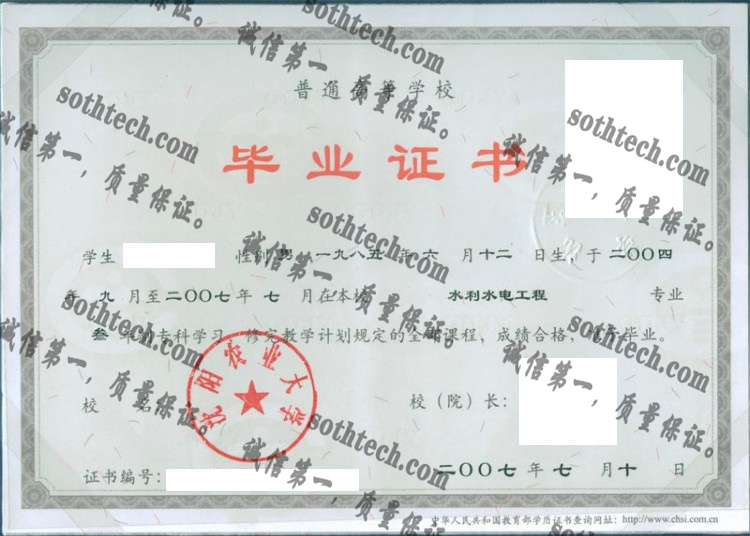 普通高等学校
毕业证书
学生 性别 男，一九八五 年 六 月 十二 日生，于 二〇〇四
年 九 月至 二〇〇七 年 七 月在本校 水利水电工程 专业
叁 年制专科学习，修完教学计划规定的全部课程，成绩合格，准予毕业。
校 名： 校（院）长：
沈阳农业大学
证书编号： 二〇〇七 年 七 月 十 日
中华人民共和国教育部学历证书查询网址：http://www.chsi.com.cn
sothtech.com
诚信第一，质量保证。
sothtech.com
诚信第一，质量保证。
sothtech.com
诚信第一，质量保证。
sothtech.com
诚信第一，质量保证。
sothtech.com
诚信第一，质量保证。
sothtech.com
诚信第一，质量保证。
sothtech.com
诚信第一，质量保证。